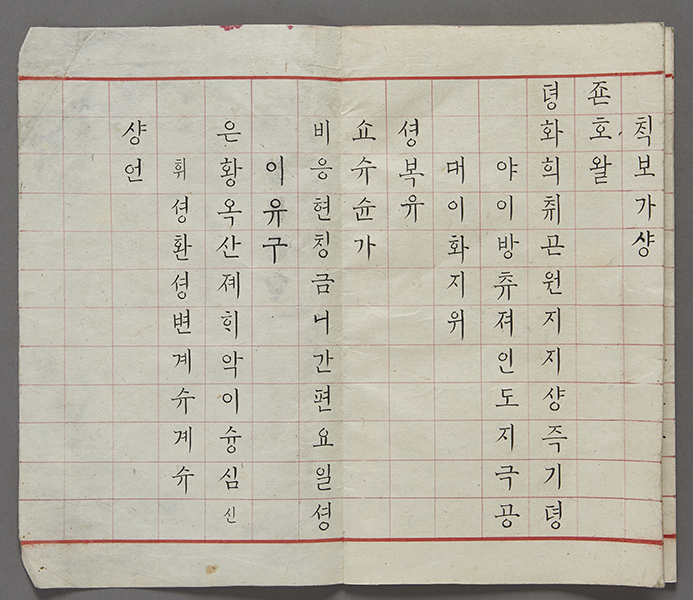 칙보가샹
죤호왈
뎡화희취곤원지지샹즉기뎡
야이방츄져인도지극공
대이화지위
셩복유
쇼슈슌가
비응현칭금니간편요일셩
이유구
은황옥산졔희악이슝심신
휘셩환셩변계슈계슈
샹언